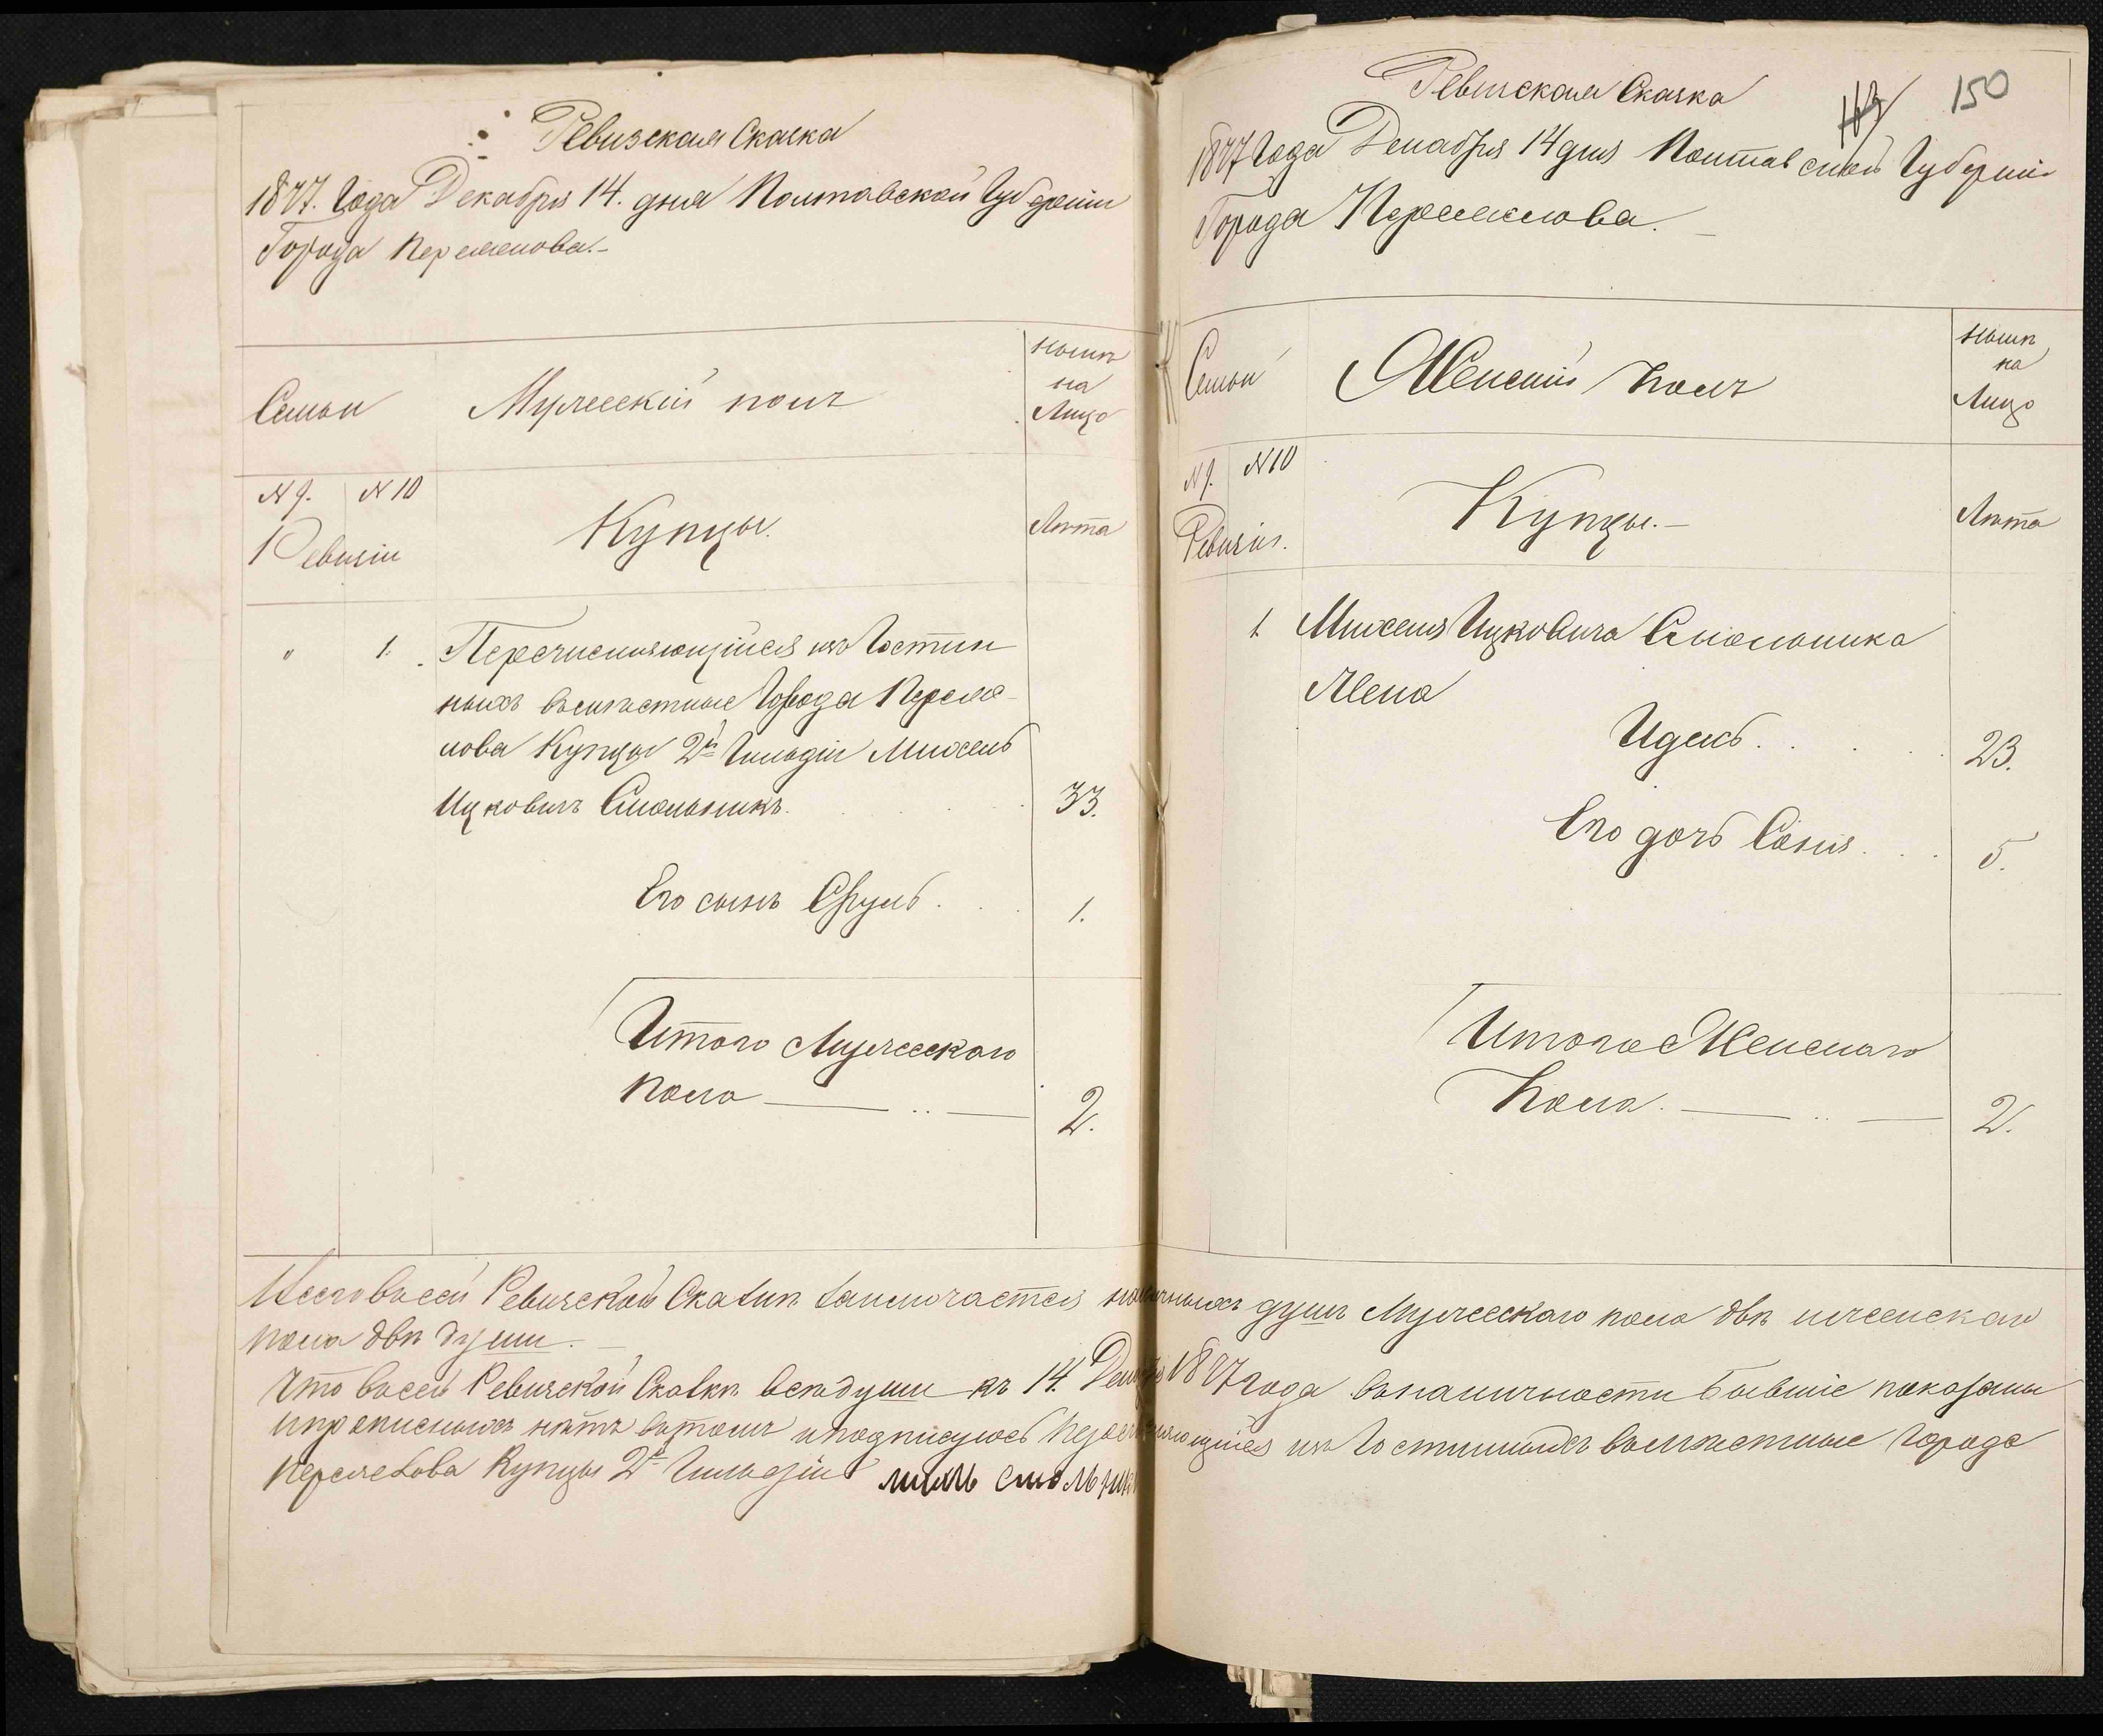 Ревизская Сказка
1877. Года Декабря 14. дня Полтавской Губерніи
Города Переяслова.-
Семьи
Мужескій полъ
нынѣ
на
Лицо
№ 9.
№ 10
Ревизіи
Купцы.
Лѣта
"
1.
Перечисляющійся изъ Гостин
ныхъ вымѣстные Города Переяс-
лова Купцы 2й Гильдіи Михель
Ицковичъ Смольникъ.
33.
Его сынъ Сруль . .
1.
Итого Мужескаго
пола
2.
Ревизская Сказка
150
1877 Года Декабря 14 дня Полтавской Губерніи
Города Переяслова. -
Семьи
Женскій полъ
нынѣ
на
Лицо
№ 9.
№ 10
Ревизіи.
Купцы. -
Лѣта
1.
Михеля Ицковича Смольника
Жена
Идесь . . . .
23.
Его дочь Сося . . .
5.
Итого Женскаго
Пола.
2.
Всего въ сей Ревизской Сказкѣ заключается наличныхъ душъ Мужескаго пола двѣ иженскаго
пола двѣ души. -
Что въ сей Ревизской Сказкѣ всѣ души къ 14. Декабря 1877 года въ наличности бывшіе показаны
ипрописныхъ нѣтъ въ томъ иподписуюсь Перечисляющійся изъ Гостинныхъ вымѣстные Города
Переяслова Купцы 2й Гильдіи смольникъ